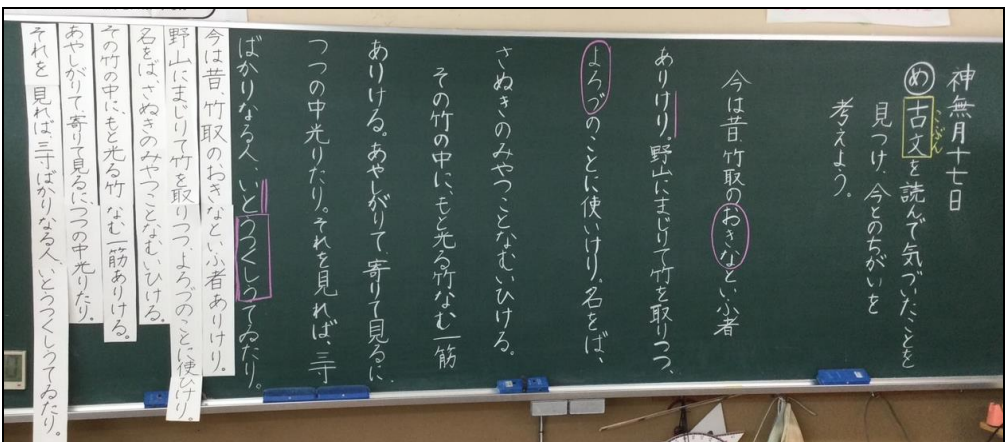 神無月十七日
め 古文を読んで気づいたことを
こぶん
見つけ、今とのちがいを
考えよう。
今は昔、竹取のおきなといふ者
ありけり。野山にまじりて竹を取りつつ、
よろづのことに使いけり。名をば、
さぬきのみやつことなむいひける。
その竹の中に、もと光る竹なむ一筋
ありける。あやしがりて、寄りて見るに、
つつの中光りたり。それを見れば、三寸
ばかりなる人、いとうつくしうてゐたり。
今は昔、竹取のおきなといふ者ありけり。
野山にまじりて竹を取りつつ、よろづのことに使ひけり。
名をば、さぬきのみやつことなむいひける。
その竹の中に、もと光る竹なむ一筋ありける。
あやしがりて、寄りて見るに、つつの中光りたり。
それを見れば、三寸ばかりなる人、いとうつくしうてゐたり。